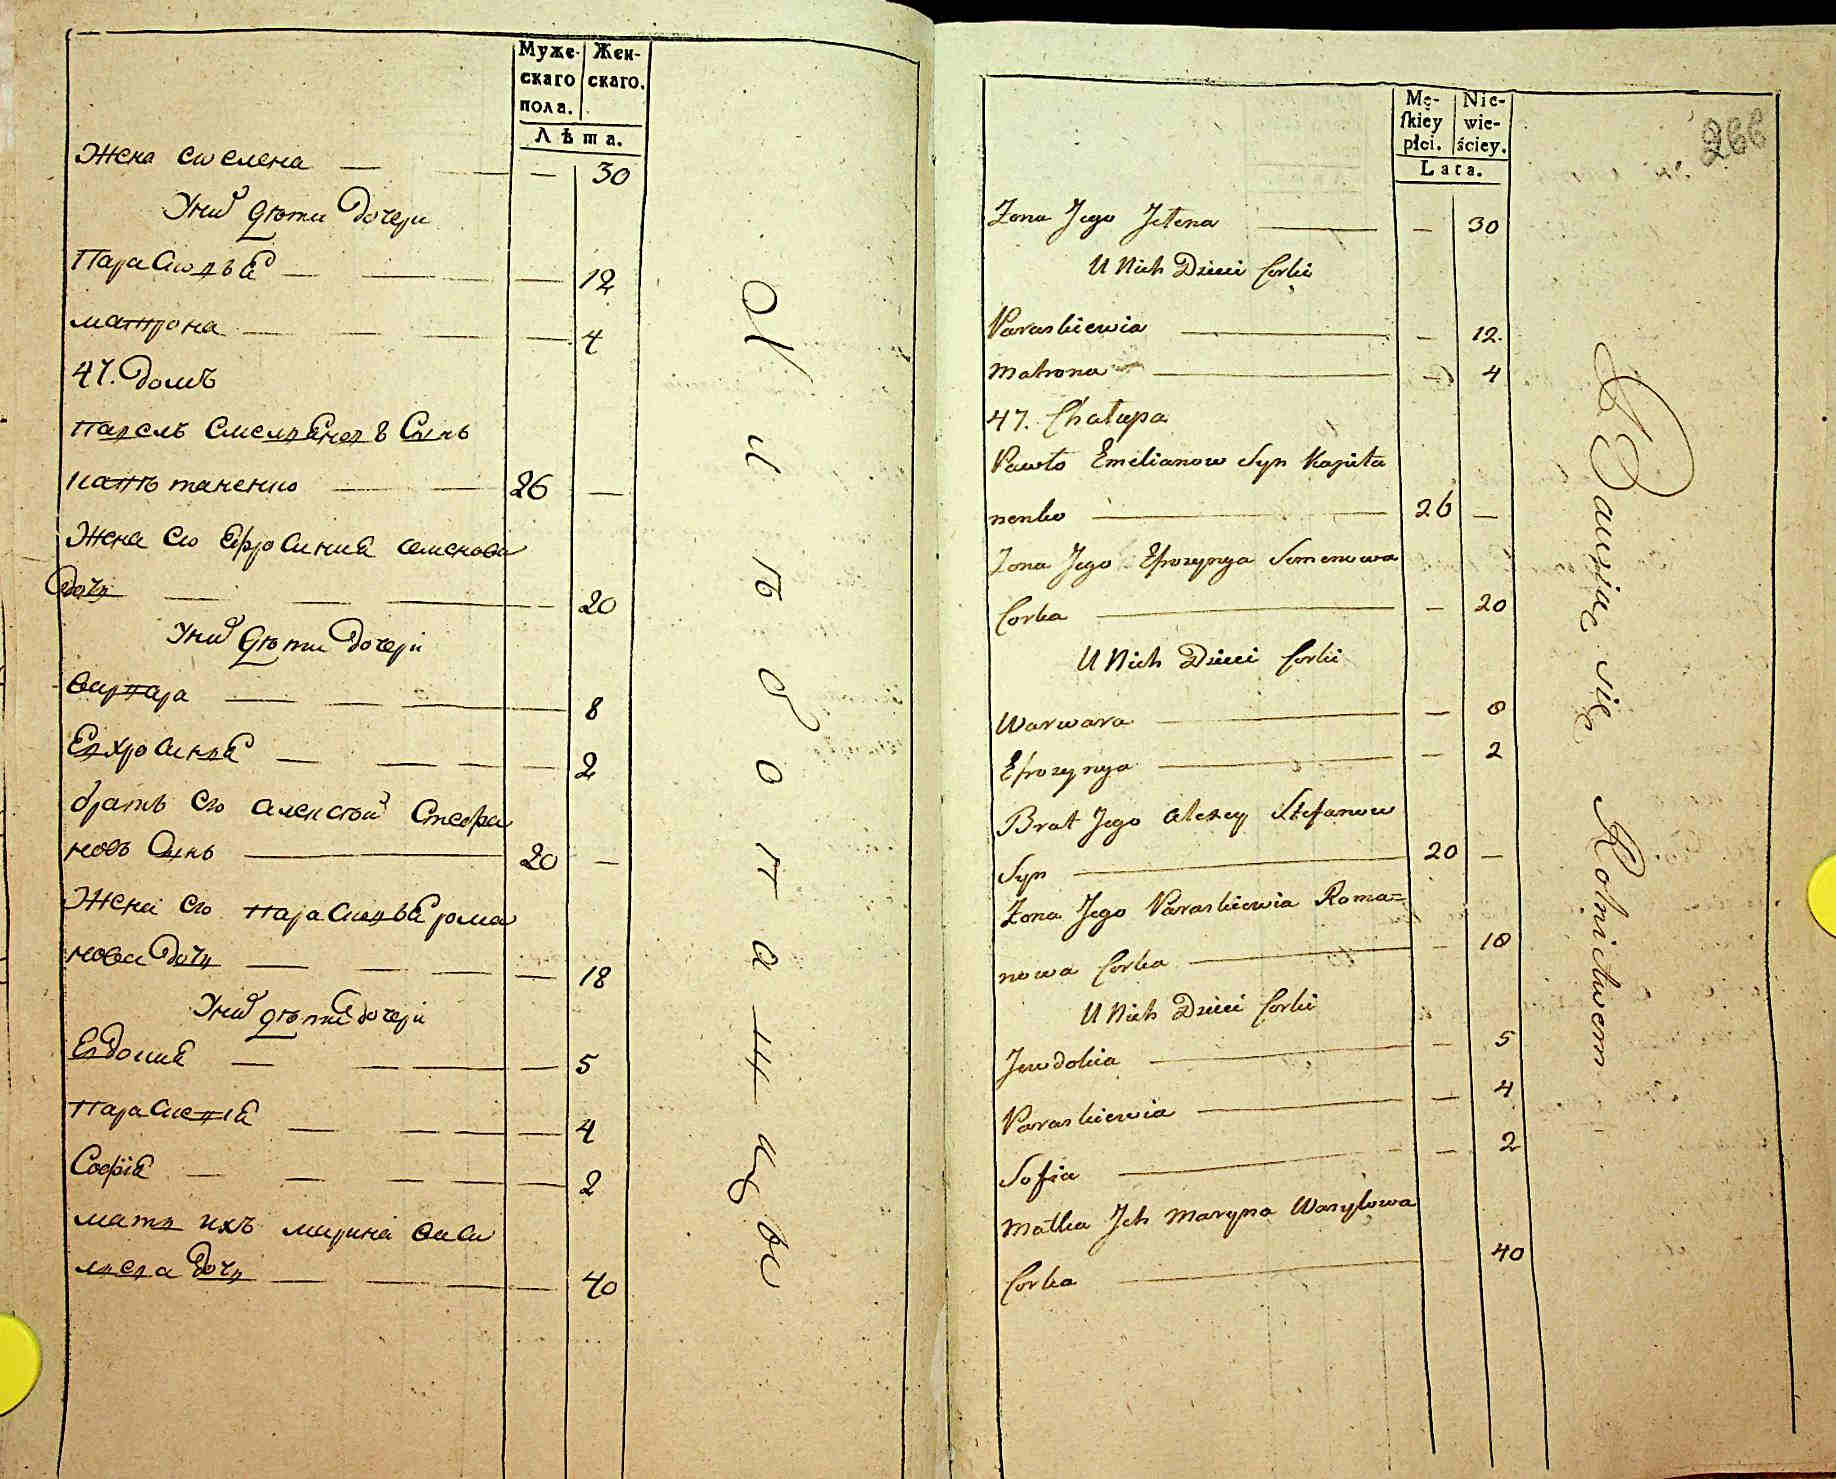 Муже-
скаго
пола.
Жен-
скаго.
Лѣта.
Жена его елена — 30
У нихъ дѣти дочери
Параскевья — 12
матрона — 4
47. Домъ
павелъ емельяновъ Сынъ
таненко — 26 —
Жена его Ефросиния семенова
дочь — 20
У нихъ дѣти дочери
варвара — 8
Евхросинья — 2
братъ его алексѣй Стефа
новъ Сынъ — 20 —
Жена его параскевья рома
нова дочь — 18
У нихъ дѣти дочери
Евдокия — 5
параскевія — 4
Софія — 2
мать ихъ марина васи
лиева дочь — 40
Mę-
ſkiey
płci.
Nie-
wie-
ściey.
Lata.
266
Żona Jego Jełena — 30
U Nich Dzieci Corki
Paraskiewia — 12.
Matrona — 4
47. Chałupa
Pawło Emelianow Syn Kapita
nenko — 26 —
Żona Jego Efrozynya Semenowa
Corka — 20
U Nich Dzieci Corki
Warwara — 8
Efrozynya — 2
Brat Jego Alexey Stefanow
Syn — 20 —
Żona Jego Paraskiewia Roma=
nowa Corka — 18
U Nich Dzieci Corki
Jewdokia — 5
Paraskiewia — 4
Sofia — 2
Matka Jch Maryna Wasylowa
Corka — 40
Bawiąc się Rolnictwem